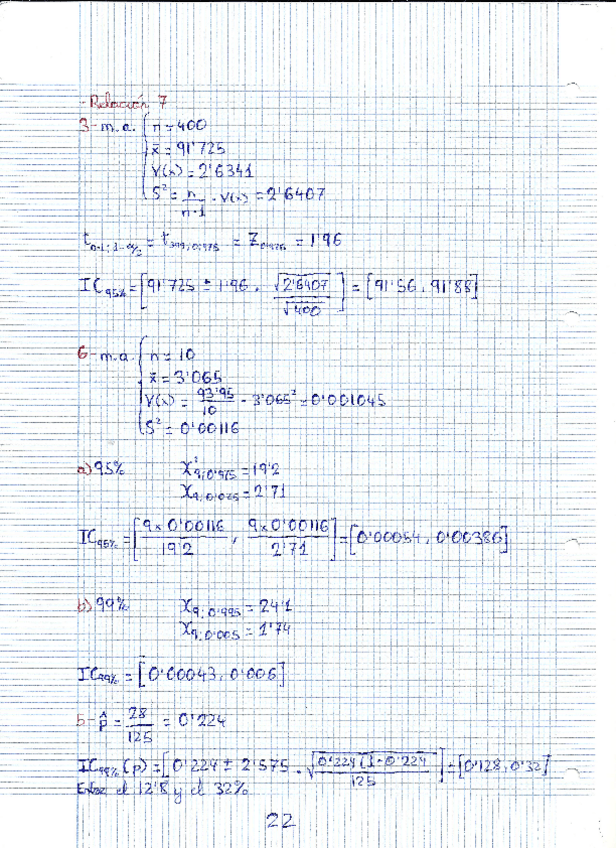 - Relación 7
3- m.a. { n = 400
x̄ = 91'725
V(x) = 2'6341
S² = n/(n-1) · V(x) = 2'6407
t_{n-1; 1-α/2} = t_{399; 0'975} = Z_{0'975} = 1'96
IC_{95%} = [91'725 ± 1'96 · √2'6407/√400] = [91'56, 91'88]
6- m.a. { n = 10
x̄ = 3'065
V(x) = 93'95/10 - 3'065² = 0'001045
S² = 0'00116
a) 95% X²_{9; 0'975} = 19'2
X_{9; 0'025} = 2'71
IC_{95%} = [9 x 0'00116/19'2, 9 x 0'00116/2'71] = [0'00054, 0'00386]
b) 99% X_{9; 0'995} = 24'1
X_{9; 0'005} = 1'74
IC_{99%} = [0'00043, 0'006]
5- p̂ = 28/125 = 0'224
IC_{99%}(p) = [0'224 ± 2'575 · √(0'224(1-0'224)/125)] = [0'128, 0'32]
Entre el 12'8 y el 32%
22